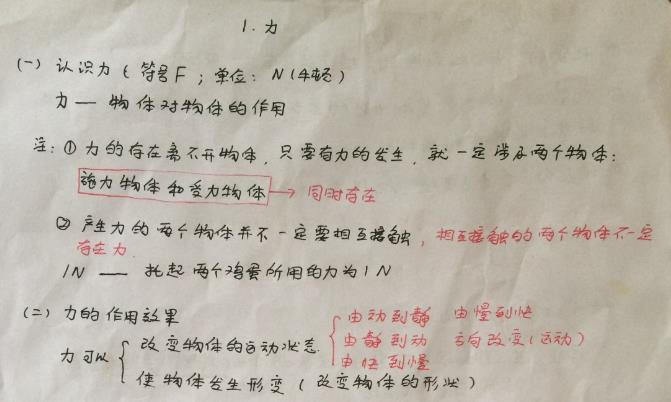 1. 力
(一) 认识力 ( 符号F ; 单位: N (牛顿)
力 — 物体对物体的作用
注: ① 力的存在离不开物体, 只要有力的发生, 就一定涉及两个物体:
施力物体和受力物体 → 同时存在
② 产生力的两个物体并不一定要相互接触, 相互接触的两个物体不一定
存在力
1N — 托起两个鸡蛋所用的力为1N
(二) 力的作用效果
力可以 { 改变物体的运动状态 { 由动到静 由慢到快
由静到动 方向改变 (运动)
由快到慢
使物体发生形变 ( 改变物体的形状 )